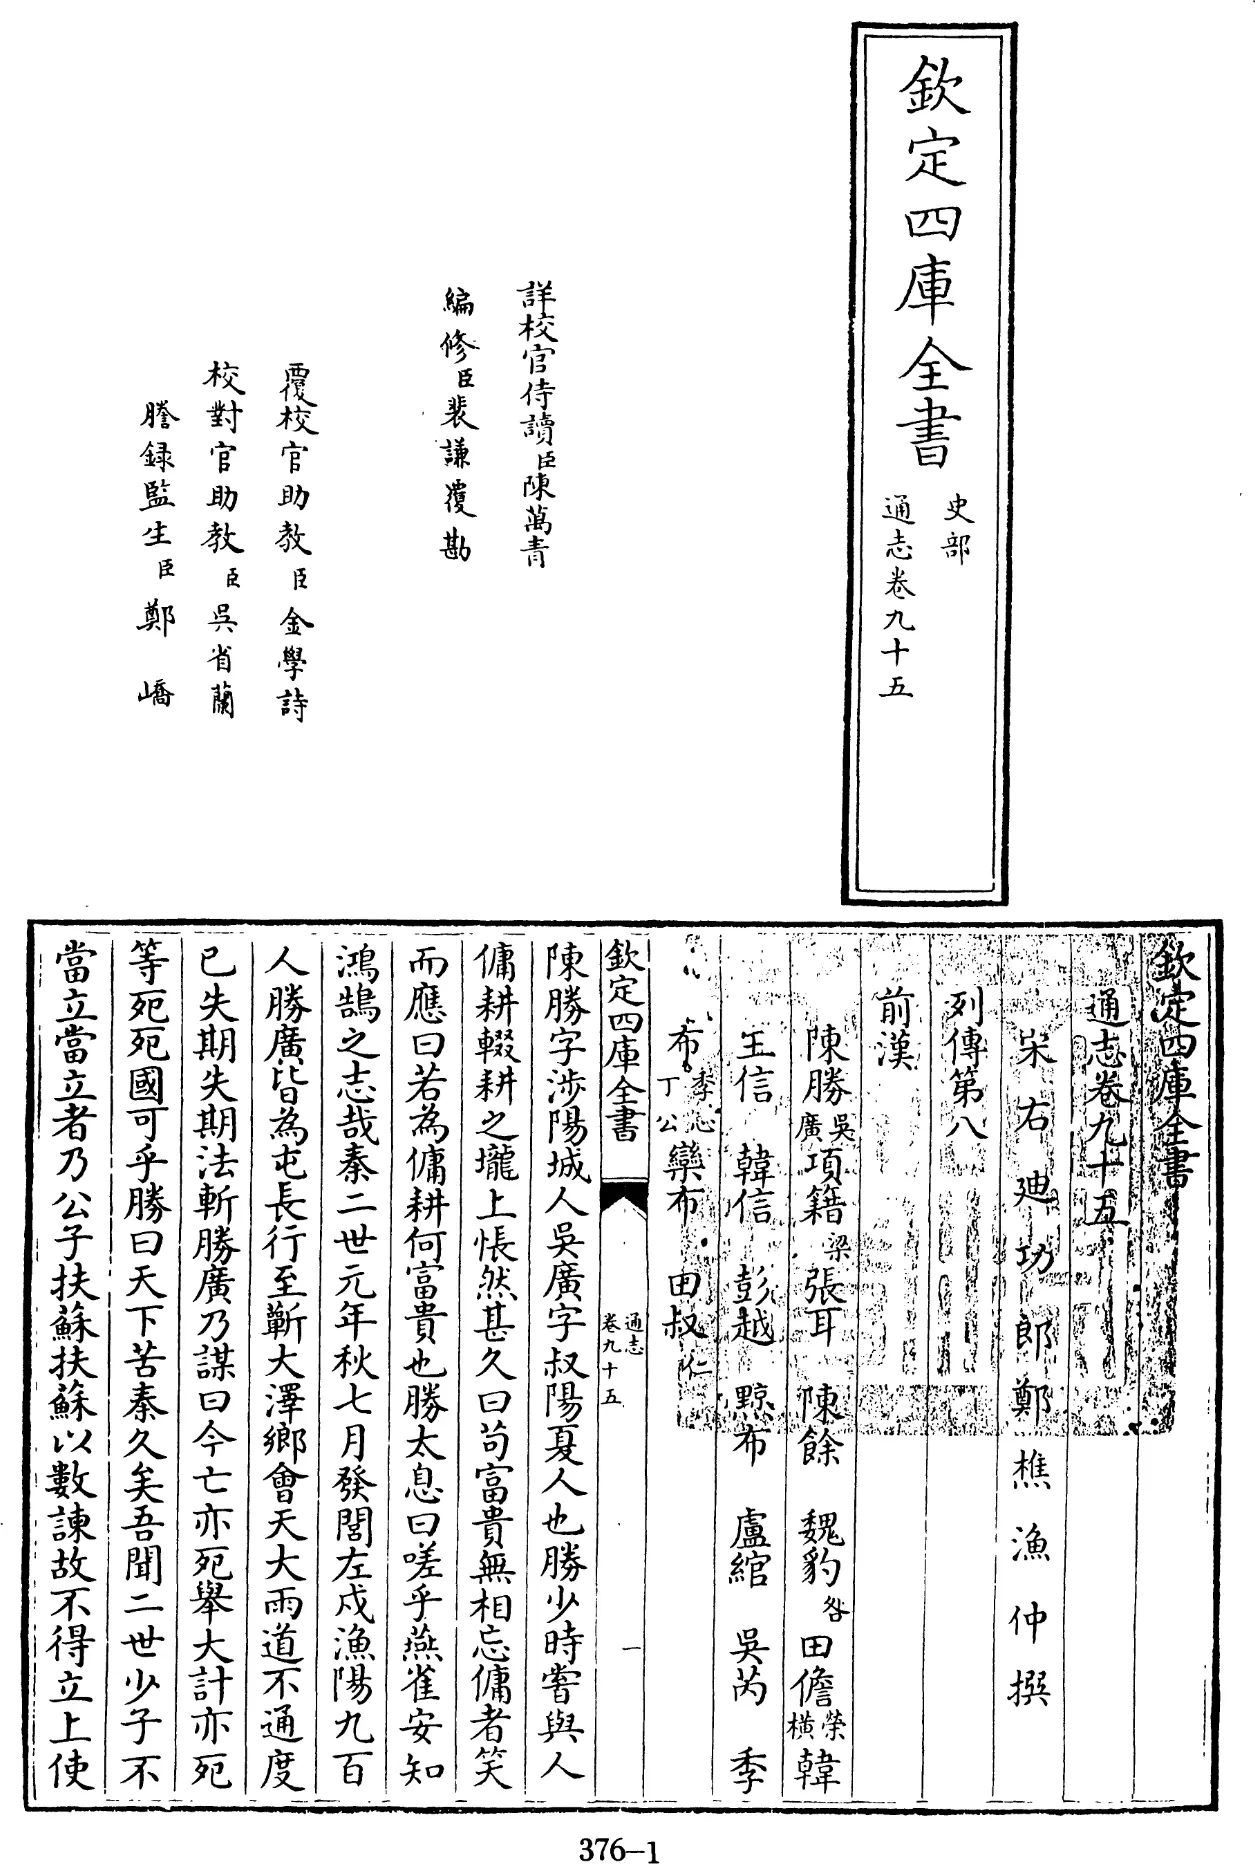 欽定四庫全書
史部
通志卷九十五
詳校官侍讀臣陳萬青
編修臣裴謙覆勘
覆校官助教臣金學詩
校對官助教臣吳省蘭
謄錄監生臣鄭嶠
欽定四庫全書
通志卷九十五
宋右迪功郎鄭樵漁仲撰
列傳第八
前漢
陳勝吳廣項籍梁張耳陳餘魏豹咎田儋榮橫韓
王信韓信彭越黥布盧綰吳芮季
布季心丁公欒布田叔仁
欽定四庫全書
通志
卷九十五
一
陳勝字涉陽城人吳廣字叔陽夏人也勝少時嘗與人
傭耕輟耕之壠上悵然甚久曰茍富貴無相忘傭者笑
而應曰若為傭耕何富貴也勝太息曰嗟乎燕雀安知
鴻鵠之志哉秦二世元年秋七月發閭左戍漁陽九百
人勝廣皆為屯長行至蘄大澤鄉會天大雨道不通度
已失期失期法斬勝廣乃謀曰今亡亦死舉大計亦死
等死死國可乎勝曰天下苦秦久矣吾聞二世少子不
當立當立者乃公子扶蘇扶蘇以數諫故不得立上使
376-1